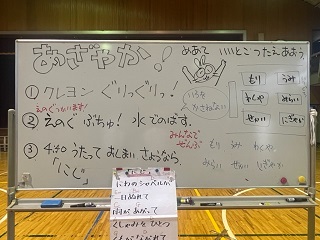 あざやか!
めあて いいとこつたえあおう。
① クレヨン ぐりっぐりっ!
えのぐつかいます!
② えのぐ ぶちゅ! 水でのばす。
いろを
かさねない
もり うみ
わくや みらい
せかい にぎやか
みんなで
ぜんぶ
③ 4:40 うたって おしまい さようなら
「にじ」
もり うみ わくや
みらい せかい にぎやか
にわのシャベルが
一日ぬれて
雨があがって
くしゃみをひとつ
くもがながれて